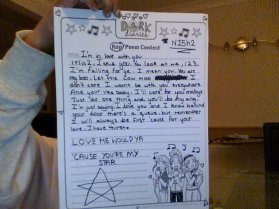 DORK
diaries
N15H2
Rap/Poem Contest
TITLE: I'm in love with you
I see you. You look at me, 1 2 3,
I'm falling for ya. I mean you. You are
my boo. Let the Cow moo
I don't care I wanna be with you everywhere.
And your like baby, I'll care for you maybe.
Just do one thing and you'll be my king.
I'm just saying I love you and I know behind
your door there's a queue, but remember
I will always be first cause for your
love, I have thirst.
LOVE ME WOULD YA
'CAUSE YOU'RE MY
STAR